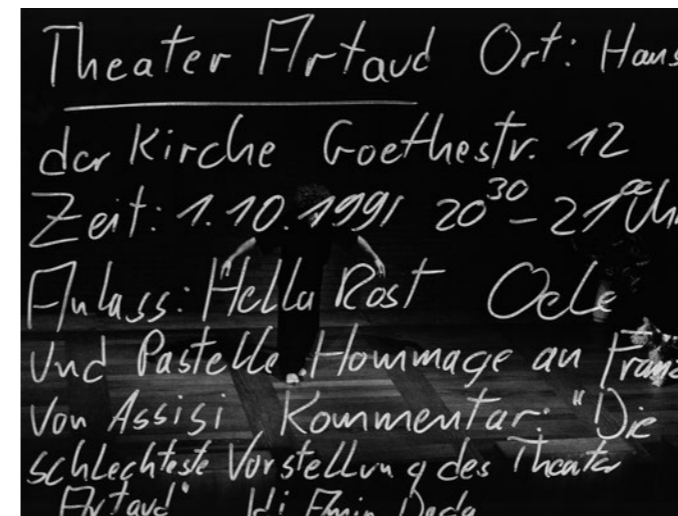 Theater Artaud Ort: Haus
der Kirche Goethestr. 12
Zeit: 1.10.1991 20³⁰ – 21⁰⁰ Uh
Anlass: Hella Rost Oele
und Pastelle. Hommage an Franz
von Assisi Kommentar: "Die
schlechteste Vorstellung des Theater
Artaud" Idi Amin Dada